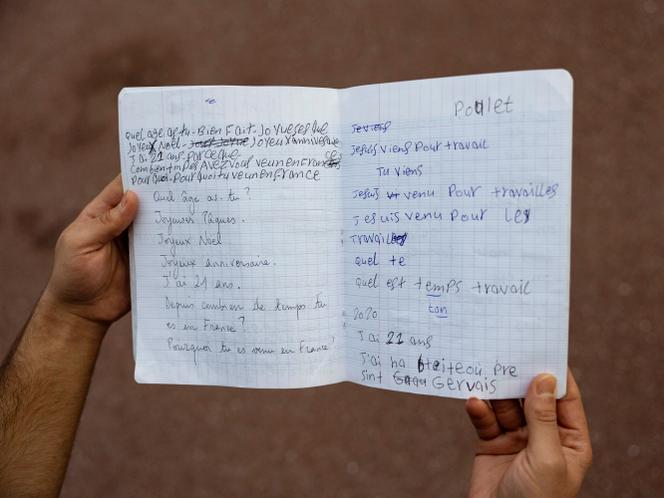 quel age as tu. Bien Fait. Jo yueses Que
Joyeux Noël. Joyeux anniversaire
J'ai 21 ans Parceque
Pour quoi. Pour quoi tu veun en France
Quel âge as-tu ?
Joyeuses Pâques.
Joyeux Noël
Joyeux anniversaire.
J'ai 21 ans.
Depuis combien de temps tu
es en France ?
Pourquoi tu es venu en France ?
Poulet
Jesuis viens Pour travail
Tu viens
Jesuis venu Pour travailles
Jesuis venu Pour les
travail
quel te
quel est temps travail
2020
ton
J'ai 21 ans
J'ai ha
sint Gervais